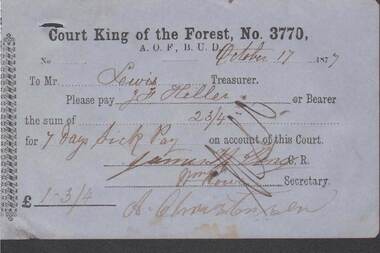 Court King of the Forest, No. 3770,
A. O. F., B. U. D.
No October 17 1877
To Mr. Lewis Treasurer.
Please pay J F Hiller or Bearer
the sum of 23/4
for 7 Days Sick Pay on account of this Court.
C. R.
Secretary.
£ 1-3/4